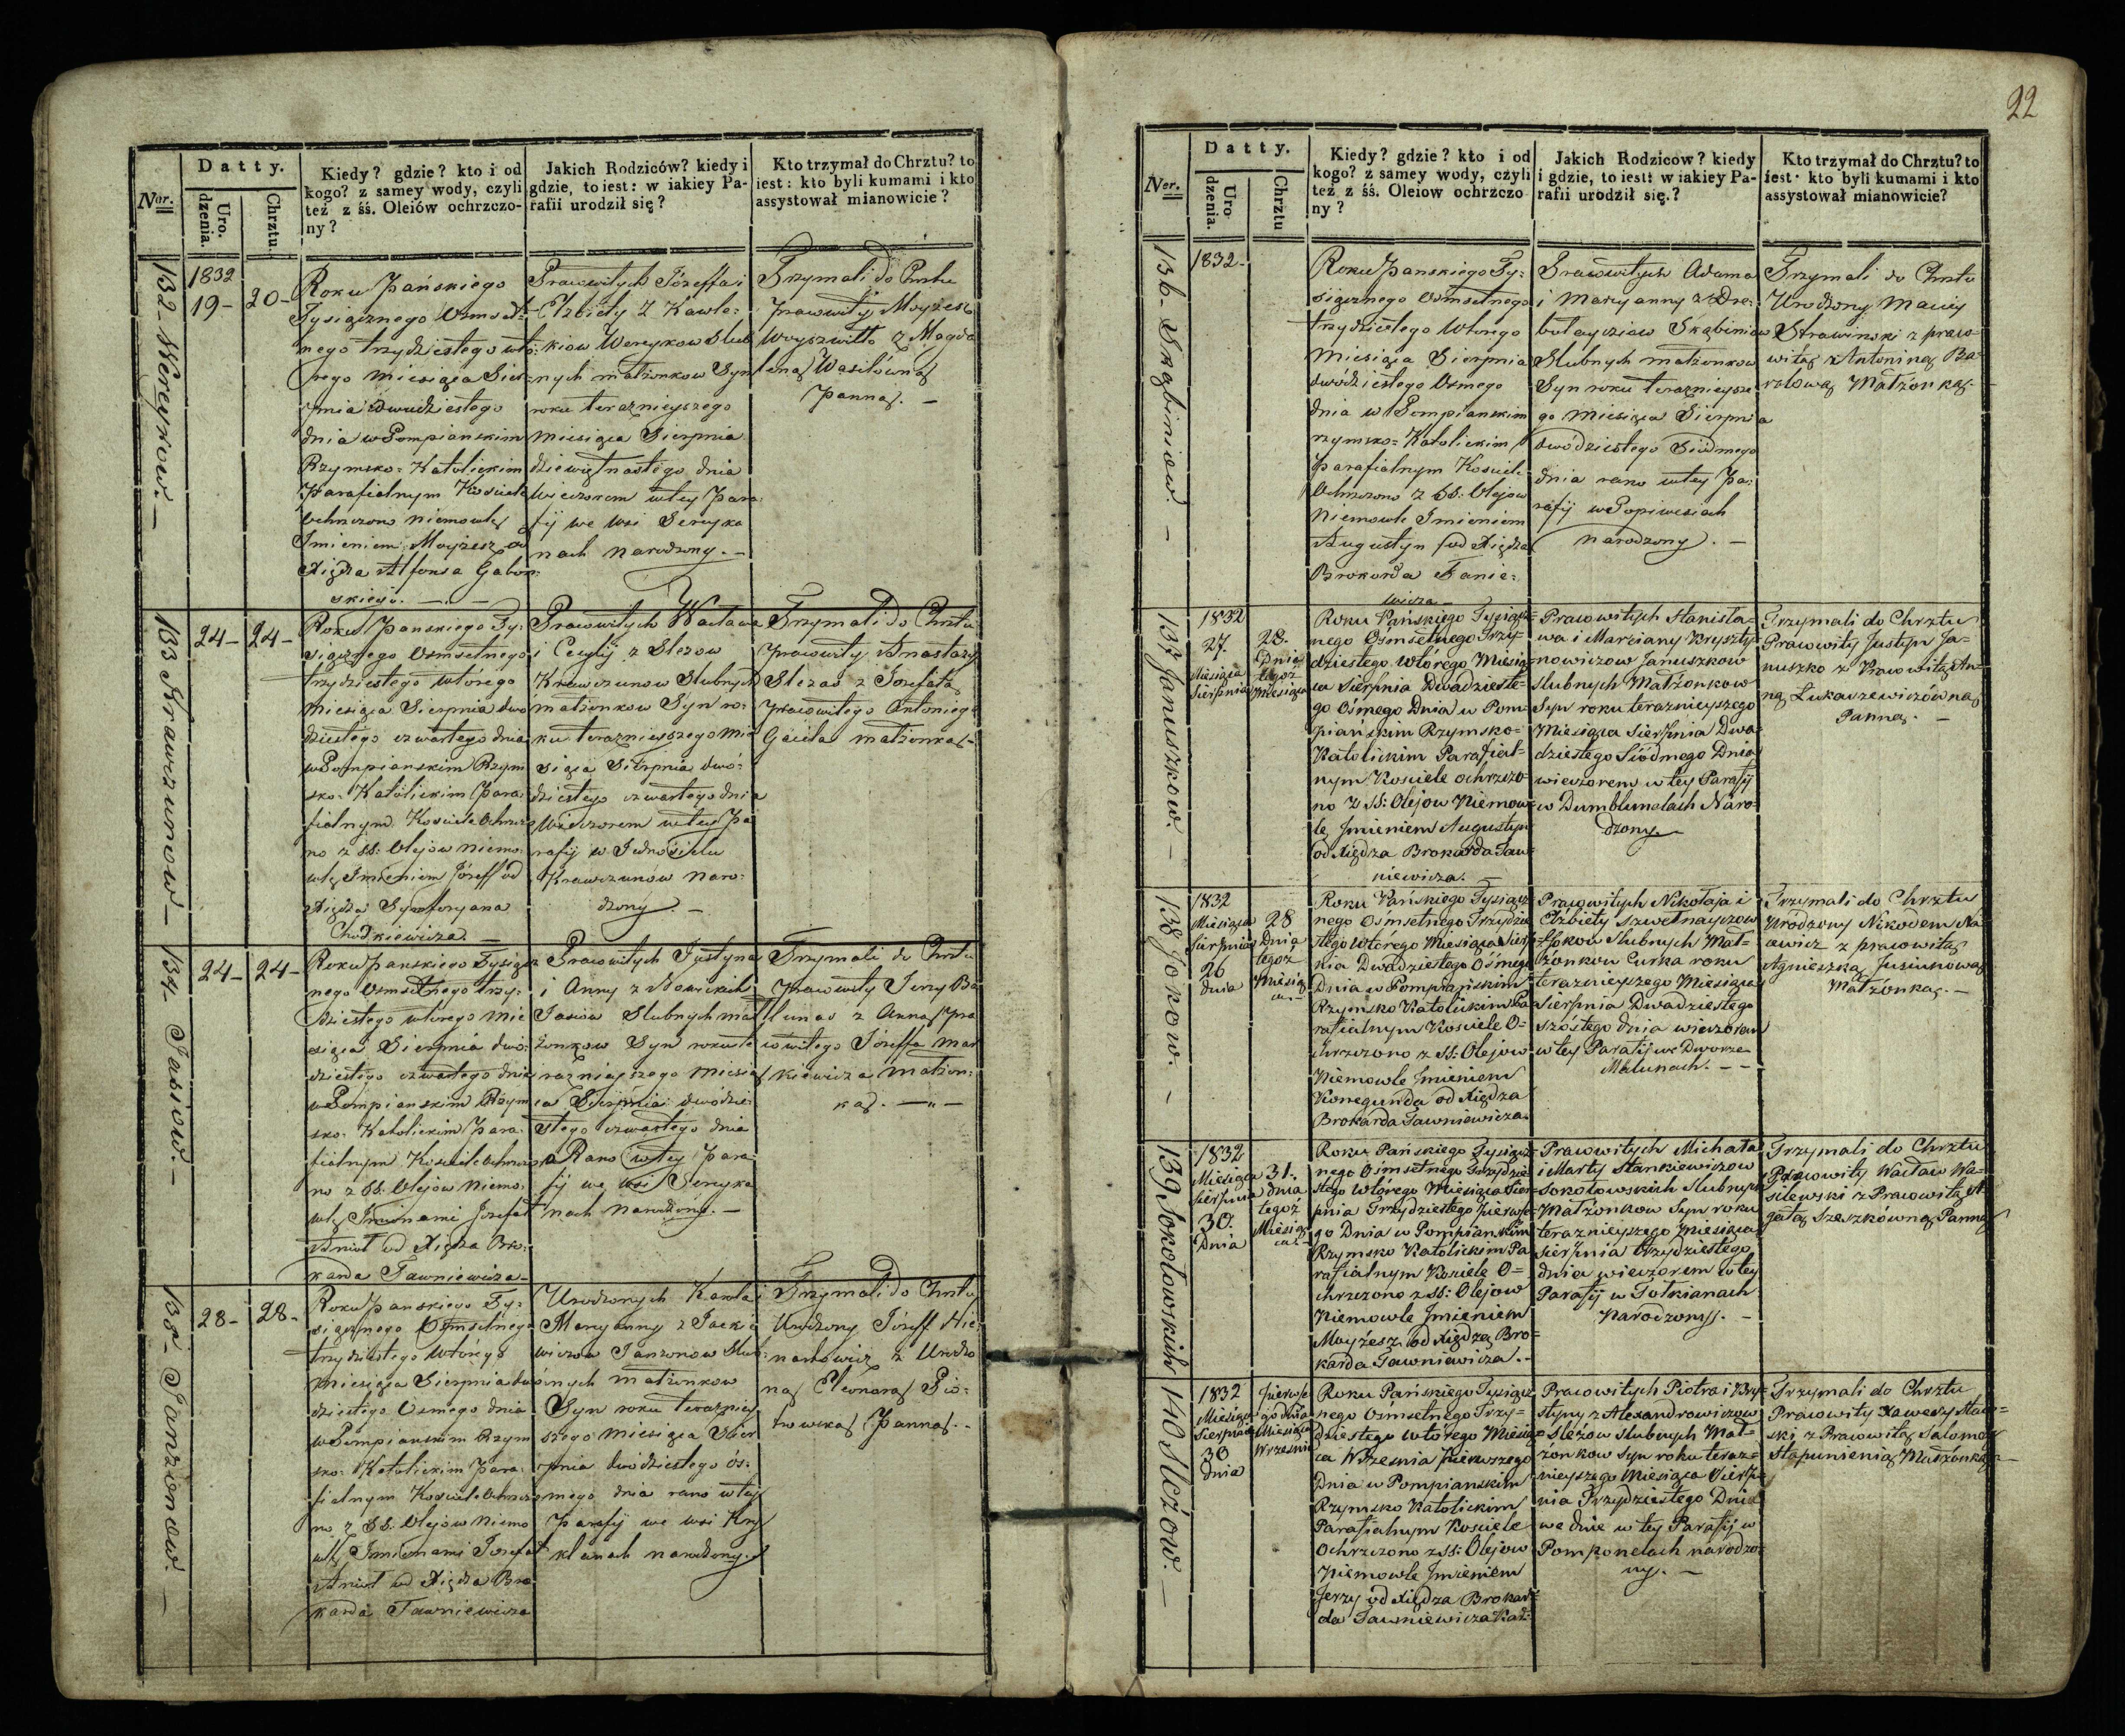 22
Nor.
Datty.
Uro-
dzenia.
Chrztu.
Kiedy? gdzie? kto i od
kogo? z samey wody, czyli
też z śś. Oleiów ochrzczo-
ny?
Jakich Rodziców? kiedy i
gdzie, to iest: w iakiey Pa-
rafii urodził się?
Kto trzymał do Chrztu? to
iest: kto byli kumami i kto
assystował mianowicie?
132- Wereykow. —
1832
19-
20-
Roku Pańskiego
Tysiącznego Ośmset=
nego trzydziestego wtó=
rego Miesiąca Sier=
pnia dwudziestego
dnia w Pompianskim
Rzymsko=Katolickim
Parafialnym Kosciele
Ochrzczono niemowlę
Imieniem Moyżesz od
Xiędza Alfonsa Gabor=
skiego. —
Pracowitych Józeffa i
Elżbiety Z Kawle=
kiow Wereykow Slub
nych małżonkow Syn
roku teraznieyszego
Miesiąca Sierpnia
dziewiętnastego dnia
Wieczorem w tey Para
fij we wsi Sereyka
nach Narodzony. —
Trzymali do Chrztu
Pracowity Moyżesz
Woyszwiłło z Magda
leną Wasilówną
Panną. —
133 Krawczunow —
24-
24-
Roku Panskiego Ty=
siącznego Osmsetnego
trzydziestego wtorego
Miesiąca Sierpnia dwó
dziestego czwartego dnia
w Pompianskim Rzym
sko- Katolickim Para=
fialnym Kosciele Ochrzczo
no z SS: Olejów niemo=
wlę Imieniem Józeff od
Xiędza Symforyana
Chodkiewicza. —
Pracowitych Wacława
i Cecylij z Slezow
Krawczunow Slubnych
małżonkow Syn ro=
ku teraznieyszego Mie
siąca Sierpnia dwó=
dziestego czwartego dnia
Wieczorem w tey Pa
rafij w Jednosielu
Krawczunow Naro=
dzony. —
Trzymali do Chrztu
Pracowity Anastazy
Slezas z Jozefatą
Pracowitego Antoniego
Gaiela małżonką-
134- Jasiow. —
24-
24-
Roku Panskiego Tysiącz
nego Osmsetnego trzy=
dziestego wtorego Mie
siąca Sierpnia dwó=
dziestego czwartego dnia
w Pompianskim Rzym
sko- Katolickim Para=
fialnym Kosciele Ochrzczo
no z SS. Olejów Niemo=
wlę Imionami Jozefat
Anioł od Xiędza Bro=
karda Tawniewicza-
Pracowitych Justyna
i Anny z Nowickich
Jasiow Slubnych mał
żonkow Syn roku te
raznieyszego Miesią
ca Sierpnia dwódzie=
stego czwartego dnia
Rano w tey Para
fij we wsi Sereyka
nach Narodzony. —
Trzymali do Chrztu
Pracowity Jerzy Ba
llunas z Anną Pra
cowitego Józeffa Mac
kiewicza małżon=
ką. —
135- Janzonow. —
28-
28-
Roku Panskiego Ty=
siącznego Osmsetnego
trzydziestego wtorego
Miesiąca Sierpnia dwó
dziestego Osmego dnia
w Pompianskim Rzym
sko- Katolickim Para=
fialnym Kosciele Ochrzczo
no z SS. Olejów niemo
wlę Imionami Jozefat
Anioł od Xiędza Bro
karda Tawniewicza
Urodzonych Karola i
Maryanny z Jackie
wiczow Janzonow Slub=
nych małżonkow
Syn roku teraznie
szego miesiąca Sier
pnia dwódziestego ós=
mego dnia rano w tey
Parafij we wsi Kry
klanach narodzony.
Trzymali do Chrztu
Urodzony Józeff Hie=
nanowicz z Urodzo
ną Eleonorą Pio=
trowską Panną. -
Ner.
Datty.
Uro-
dzenia.
Chrztu
Kiedy? gdzie? kto i od
kogo? z samey wody, czyli
też z śś. Oleiow ochrzczo
ny?
Jakich Rodzicow? kiedy
i gdzie, to iest: w iakiey Pa-
rafii urodził się.?
Kto trzymał do Chrztu? to
iest· kto byli kumami i kto
assystował mianowicie?
136- Skąbiniow. —
1832-
Roku Panskiego Ty=
siącznego Osmsetnego
trzydziestego Wtorego
Miesiąca Sierpnia
dwódziestego Osmego
dnia w Pompianskim
rzymsko=Katolickim
Parafialnym Kosciele
Ochrzczono z SS: Olejow
Niemowle Imieniem
Augustyn od Xiędza
Brokarda Tanie=
wicza —
Pracowitych Adama
i Maryanny z Dre=
bulayciow Skąbiniow
Slubnych małżonkow
Syn roku teraznieysze
go Miesiąca Sierpnia
dwódziestego Siodmego
dnia rano w tey Pa=
rafij w Popiwesiach
narodzony. —
Trzymali do Chrztu
Urodzony Maciey
Strawinski z praco=
witą Antoniną Ba=
rolową Małżonką.
137 Januszkow. —
1832
27.
Miesiąca
Sierpnia
28.
Dnia
tegoż
Miesiąca
Roku Pańskiego Tysiącz=
nego Ośmsetnego Trzy=
dziestego Wtórego Miesią=
ca Sierpnia Dwadzieste=
go Ośmego Dnia w Pom=
piańskim Rzymsko=
Katolickim Parafial=
nym Kosciele ochrzczo=
no z SS: Olejow Niemow=
lę Imieniem Augustyn
od Xiędza Brokarda Taw=
niewicza. —
Pracowitych Stanisła=
wa i Marcianny Kryszty=
nowiczow Januszkow
Slubnych Małżonkow
Syn roku teraznieyszego
Miesiąca Sierpnia Dwa=
dziestego Siódmego Dnia
wieczorem w tey Parafij
w Dumblunelach Naro=
dzony. —
Trzymali do Chrztu
Pracowity Justyn Ja=
nuszko z Pracowitą An=
ną Łukaszewiczówną
Panną. —
138 Jokow. —
1832
Miesiąca
Sierpnia
26
Dnia
28
Dnia
tegoż
Miesią
ca. —
Roku Pańskiego Tysiącz
nego Ośmsetnego Trzydzie
stego Wtórego Miesiąca Sierp
nia Dwadziestego Ośmego
Dnia w Pompianskim
Rzymsko Katolickim Pa
rafialnym Kosciele O=
chrzczono z SS: Olejow
Niemowle Imieniem
Konegunda od Xiędza
Brokarda Tawniewicza.
Pracowitych Nikołaja i
Elżbiety Szwetnayczow
Jokow Slubnych Mał=
żonkow Curka roku
teraznieyszego Miesiąca
Sierpnia Dwadziestego
szóstego dnia wieczorem
w tey Parafij we Dworze
Malunach. — —
Trzymali do Chrztu
Urodzony Nikodem Na
cewicz z pracowitą
Agnieszką Jusiunową
Małżonką. —
139 Sokołowskich
1832
Miesiąca
Sierpnia
30.
Dnia
31.
dnia
tegoż
Miesią
ca. —
Roku Pańskiego Tysiącz=
nego Ośmsetnego Trzydzie
stego Wtórego Miesiąca Sier=
pnia Trzydziestego Pierwsze=
go Dnia w Pompianskim
Rzymsko Katolickim Pa
rafialnym Kosciele O=
chrzczono z SS: Olejow
Niemowle Imieniem
Moyżesz od Xiędza Bro=
karda Tawniewicza. -
Pracowitych Michała
i Marty Stankiewiczow
Sokołowskich Slubnych
Małżonkow Syn roku
teraznieyszego Miesiąca
Sierpnia Trzydziestego
dnia wieczorem w tey
Parafij w Totkianach
Narodzony. —
Trzymali do Chrztu
Pracowity Wacław Wa=
silewski z Pracowitą A=
gatą Szeszkówną Panną
140 Slezow. —
1832
Miesiąca
Sierpnia
30
Dnia
Pierwsze
go dnia
Miesiąca
Wrzesnia
Roku Pańskiego Tysiącz
nego Ośmsetnego Trzy=
dziestego Wtórego Miesią
ca Wrzesnia Pierwszego
Dnia w Pompianskim
Rzymsko Katolickim
Parafialnym Kosciele
Ochrzczono z SS: Olejow
Niemowle Imieniem
Jerzy od Xiędza Brokar=
da Tawniewicza
Pracowitych Piotra i Kry=
styny z Alexandrowiczow
Slezow Slubnych Mał=
żonkow Syn roku teraz=
nieyszego Miesiąca Sierp
nia Trzydziestego Dnia
we dnie w tey Parafij w
Pomponelach narodzo=
ny. —
Trzymali do Chrztu
Pracowity Xawery
ski z Pracowitą Salomeą
Stapunienią Małżonką —